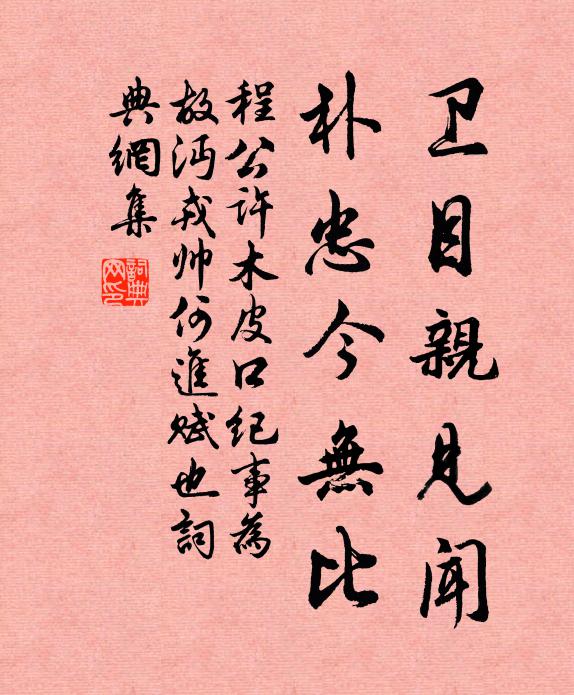 卫目親見聞
朴忠今無比
程公許木皮口纪事為
故沔戎帅何進赋也詞
典網集
詞典网印